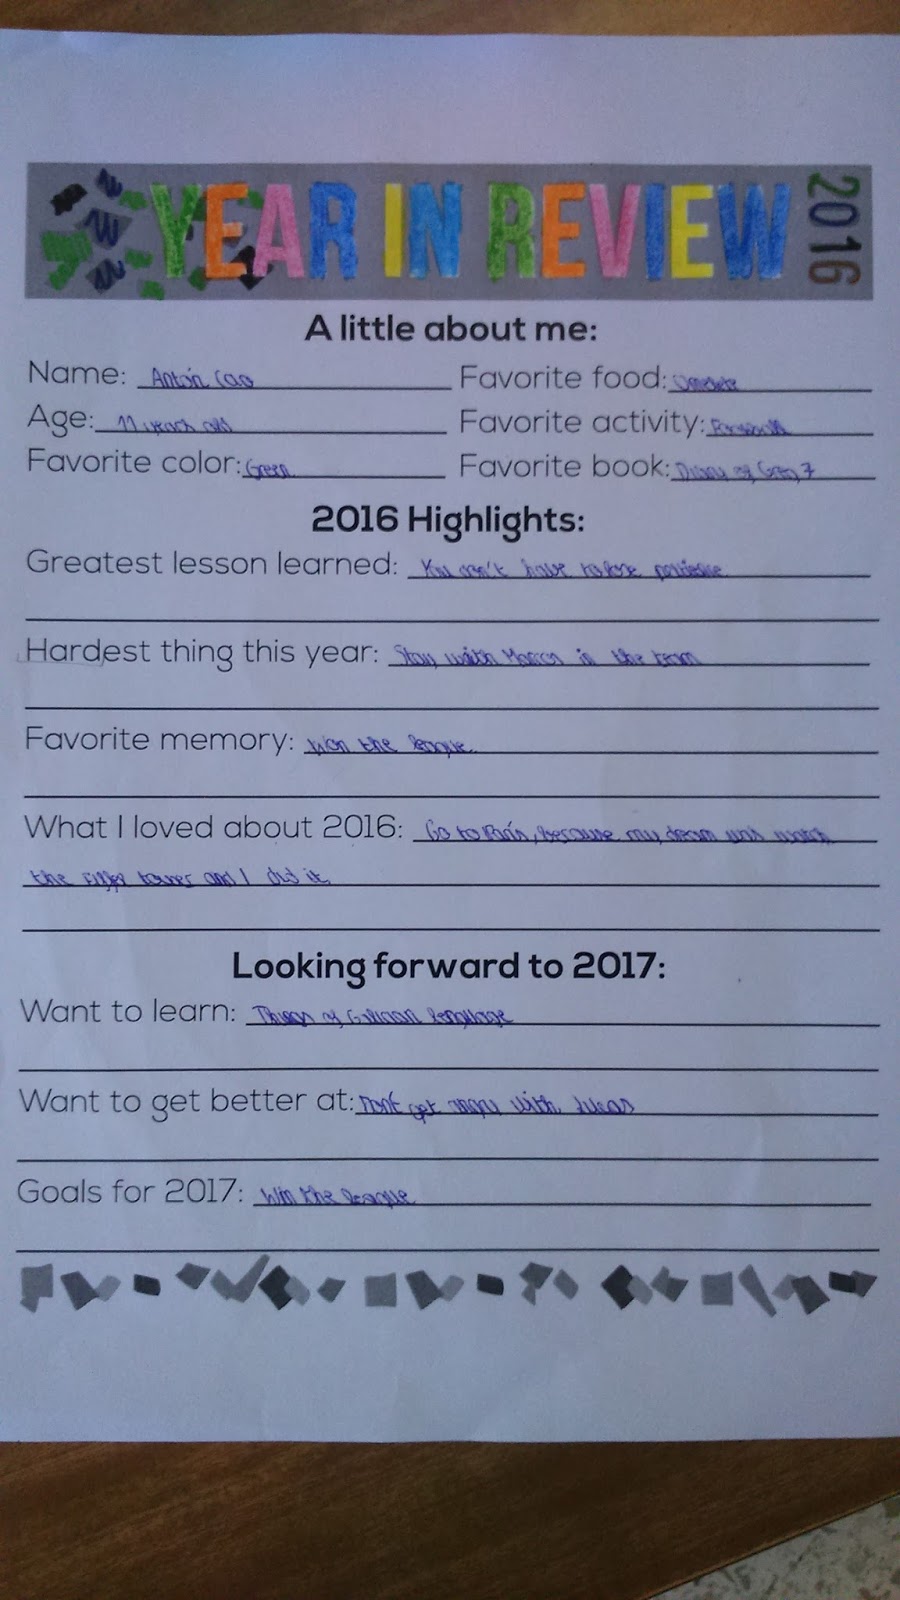 YEAR IN REVIEW 2016
A little about me:
Name: Antón Cao
Favorite food: Omelete
Age: 11 years old
Favorite activity:
Favorite color: Green
Favorite book: Diary of Greg 7
2016 Highlights:
Greatest lesson learned: You don't have to lose
Hardest thing this year: Stay with Marcos in the team
Favorite memory: Won the league
What I loved about 2016: Go to París, because my dream was watch
the Eiffel tower and I did it.
Looking forward to 2017:
Want to learn: Things of Galician language
Want to get better at: Dont get angry with Lucas
Goals for 2017: Win the league